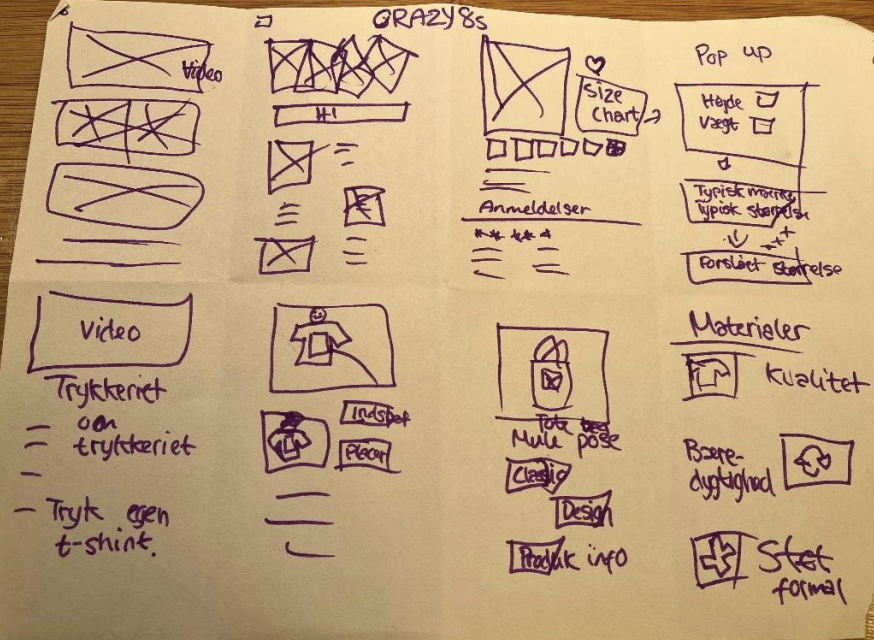 CRAZY 8s
Video
H1
Size
Chart
Anmeldelser
Pop up
Højde
Vægt
Typisk
Typisk størrelse
Forslået størrelse
Video
Trykkeriet
om
trykkeriet
Tryk egen
t-shirt.
Indsæt
Placer
Tote bag
Mule pose
Classic
Design
Produk info
Materialer
Kvalitet
Bære-
dygtighed
Støt
formål